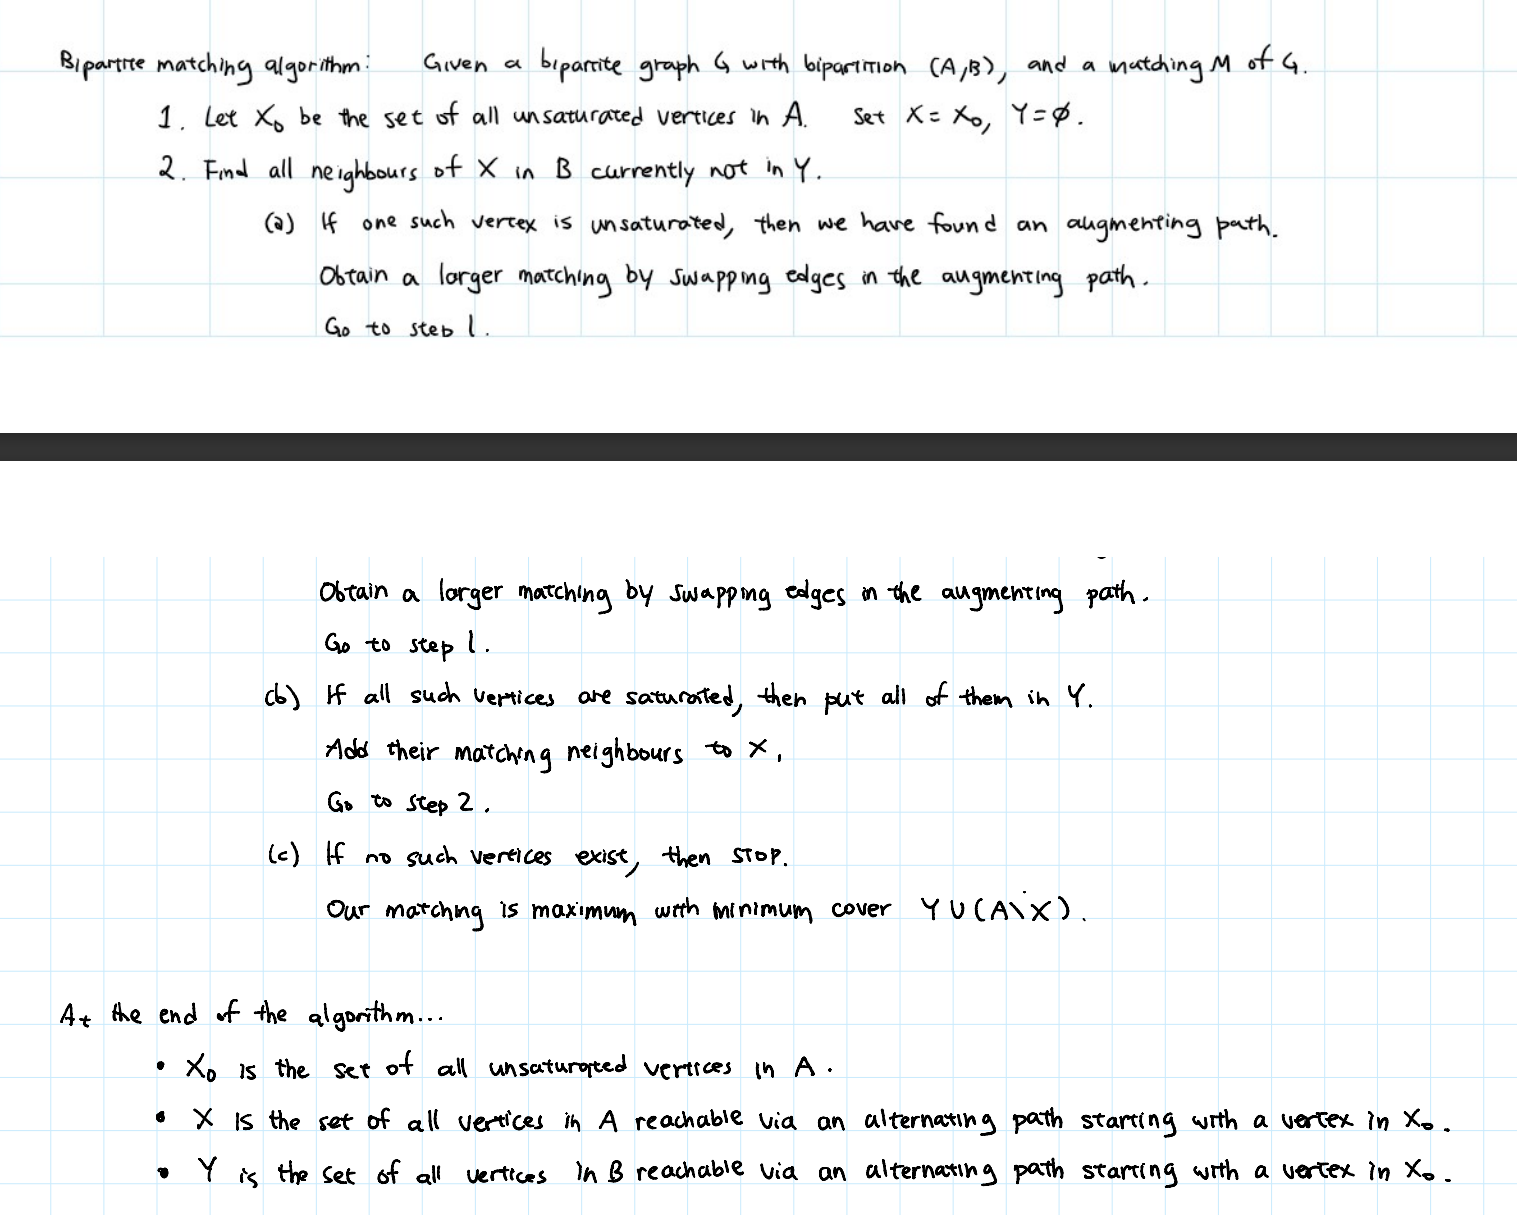 Bipartite matching algorithm: Given a bipartite graph G with bipartition (A,B), and a matching M of G.
1. Let X₀ be the set of all unsaturated vertices in A. Set X = X₀, Y = ∅.
2. Find all neighbours of X in B currently not in Y.
(a) If one such vertex is unsaturated, then we have found an augmenting path.
Obtain a larger matching by swapping edges in the augmenting path.
Go to step 1.
Obtain a larger matching by swapping edges in the augmenting path.
Go to step 1.
(b) If all such vertices are saturated, then put all of them in Y.
Add their matching neighbours to X.
Go to step 2.
(c) If no such vertices exist, then STOP.
Our matching is maximum with minimum cover Y∪(A\X).
At the end of the algorithm...
• X₀ is the set of all unsaturated vertices in A.
• X is the set of all vertices in A reachable via an alternating path starting with a vertex in X₀.
• Y is the set of all vertices in B reachable via an alternating path starting with a vertex in X₀.